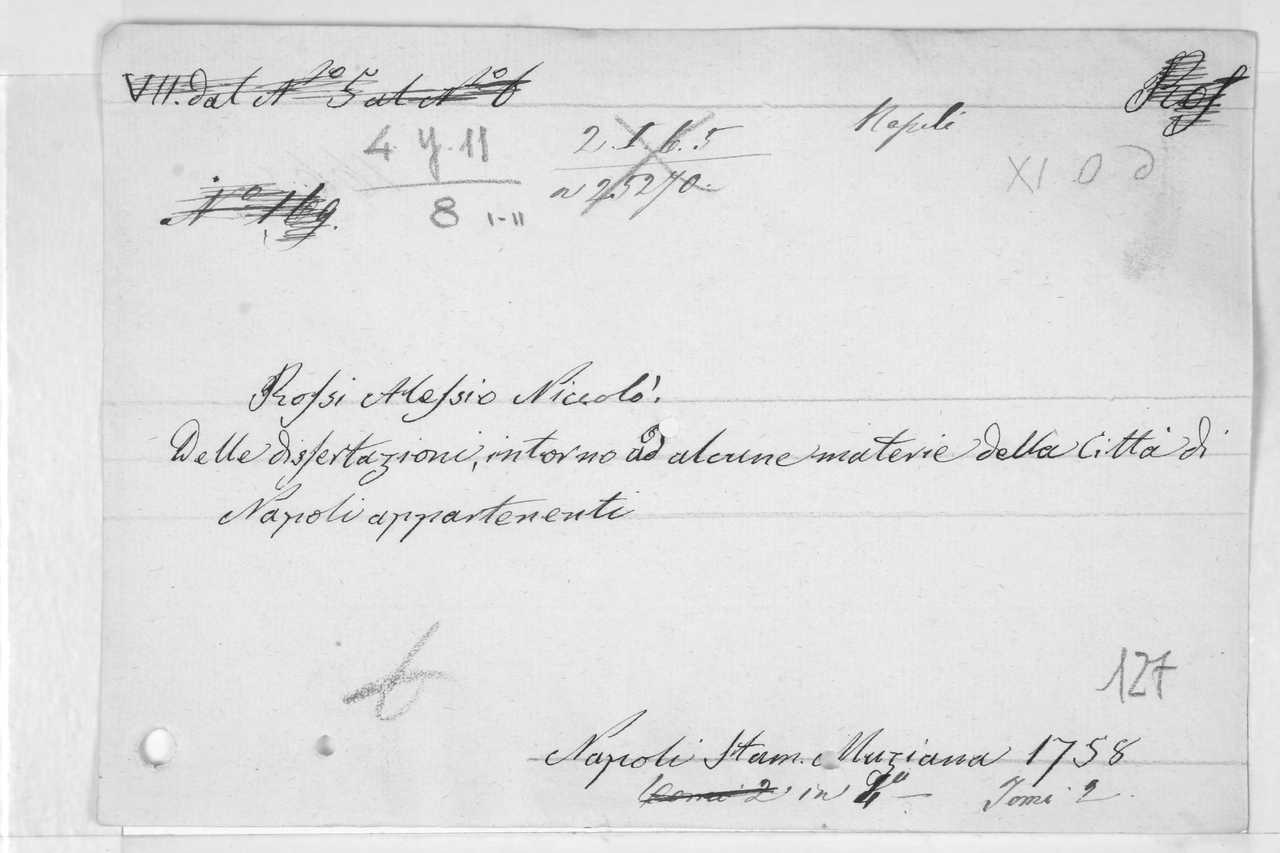 VII. dal N° 5 al N° 6
Napoli
4. Y. 11
8 I-II
2. I. 6. 5
a 25270.
XI D
N° 169.
Rossi Alessio Niccolò.
Delle dissertazioni, intorno ad alcune materie della Città di
Napoli appartenenti
127
Napoli Stam. Muziana 1758
tomi 2 in 4° Tomi 2.